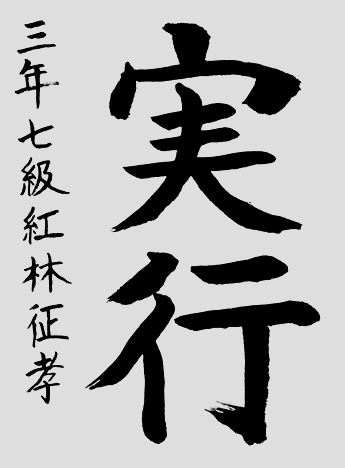 実行
三年七級紅林征孝